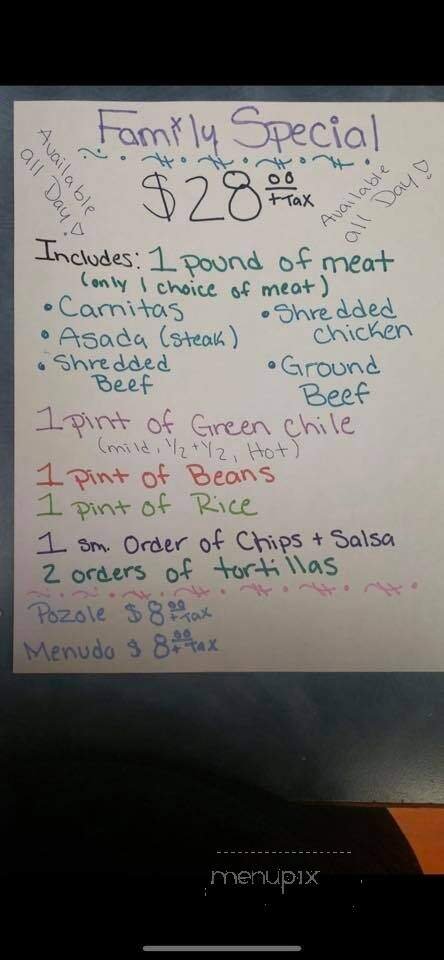 Family Special
Available all Day!
$28 00 + Tax
Available all Day!
Includes: 1 pound of meat
(only 1 choice of meat)
• Carnitas
• Shredded Chicken
• Asada (steak)
• Shredded Beef
• Ground Beef
1 pint of Green chile
(mild, 1/2 + 1/2, Hot)
1 pint of Beans
1 pint of Rice
1 sm. Order of Chips + Salsa
2 orders of tortillas
Pozole $8 00 + Tax
Menudo $8 00 + Tax
menupix